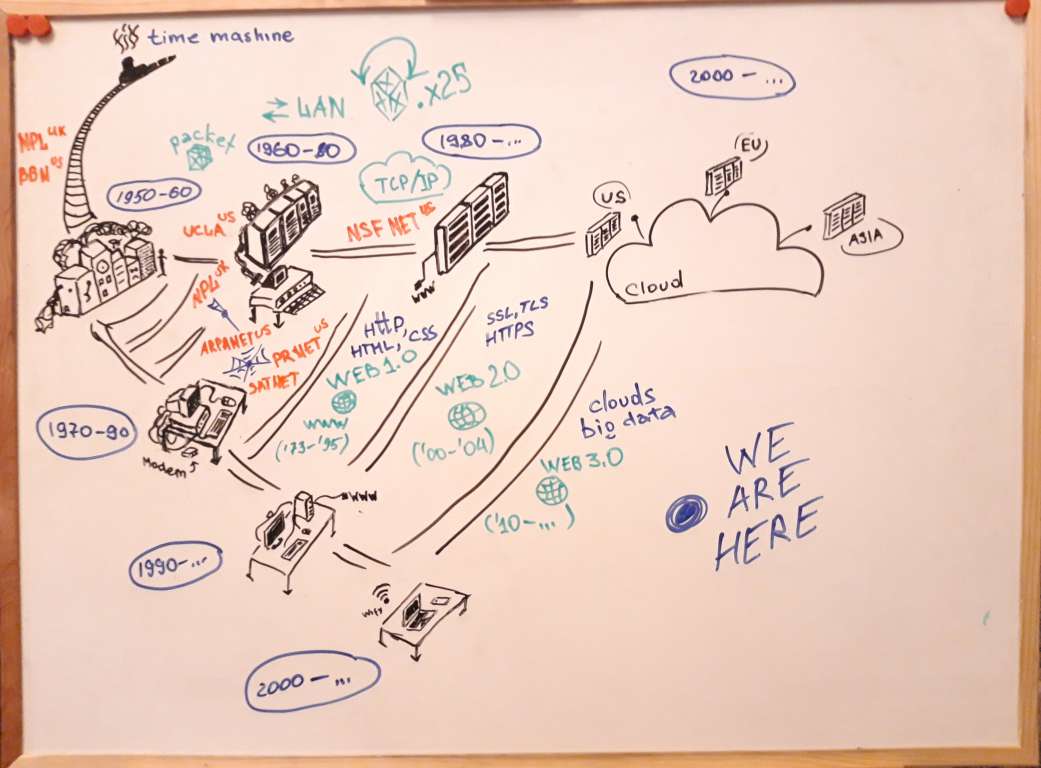 time mashine
2000-...
LAN
.x25
NPL UK
BBN US
packet
1960-80
1980-...
EU
TCP/IP
1950-60
UCLA US
NSF NET US
US
ASIA
WWW
Cloud
NPL UK
ARPANET US
PRNET US
SATNET
HTTP,
HTML, CSS
WEB 1.0
WWW
('73-'95)
SSL, TLS
HTTPS
WEB 2.0
('00-'04)
clouds
big data
WEB 3.0
('10-...)
1970-90
Modem
WWW
1990-...
WiFi
2000-...
WE
ARE
HERE